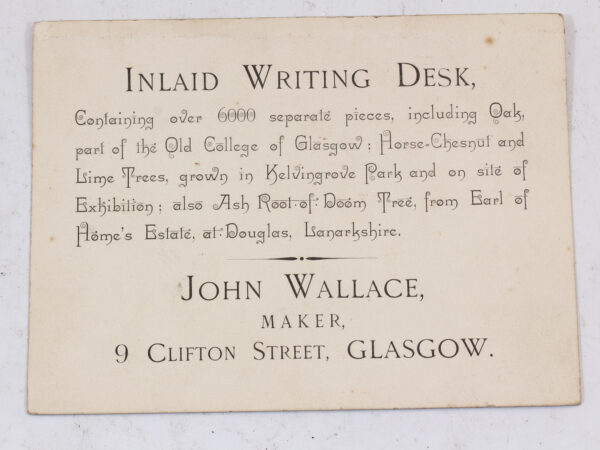 INLAID WRITING DESK,
Containing over 6000 separate pieces, including Oak,
part of the Old College of Glasgow; Horse-Chesnut and
Lime Trees, grown in Kelvingrove Park and on site of
Exhibition; also Ash Root of Doom Tree, from Earl of
Home's Estate, at Douglas, Lanarkshire.
JOHN WALLACE,
MAKER,
9 CLIFTON STREET, GLASGOW.